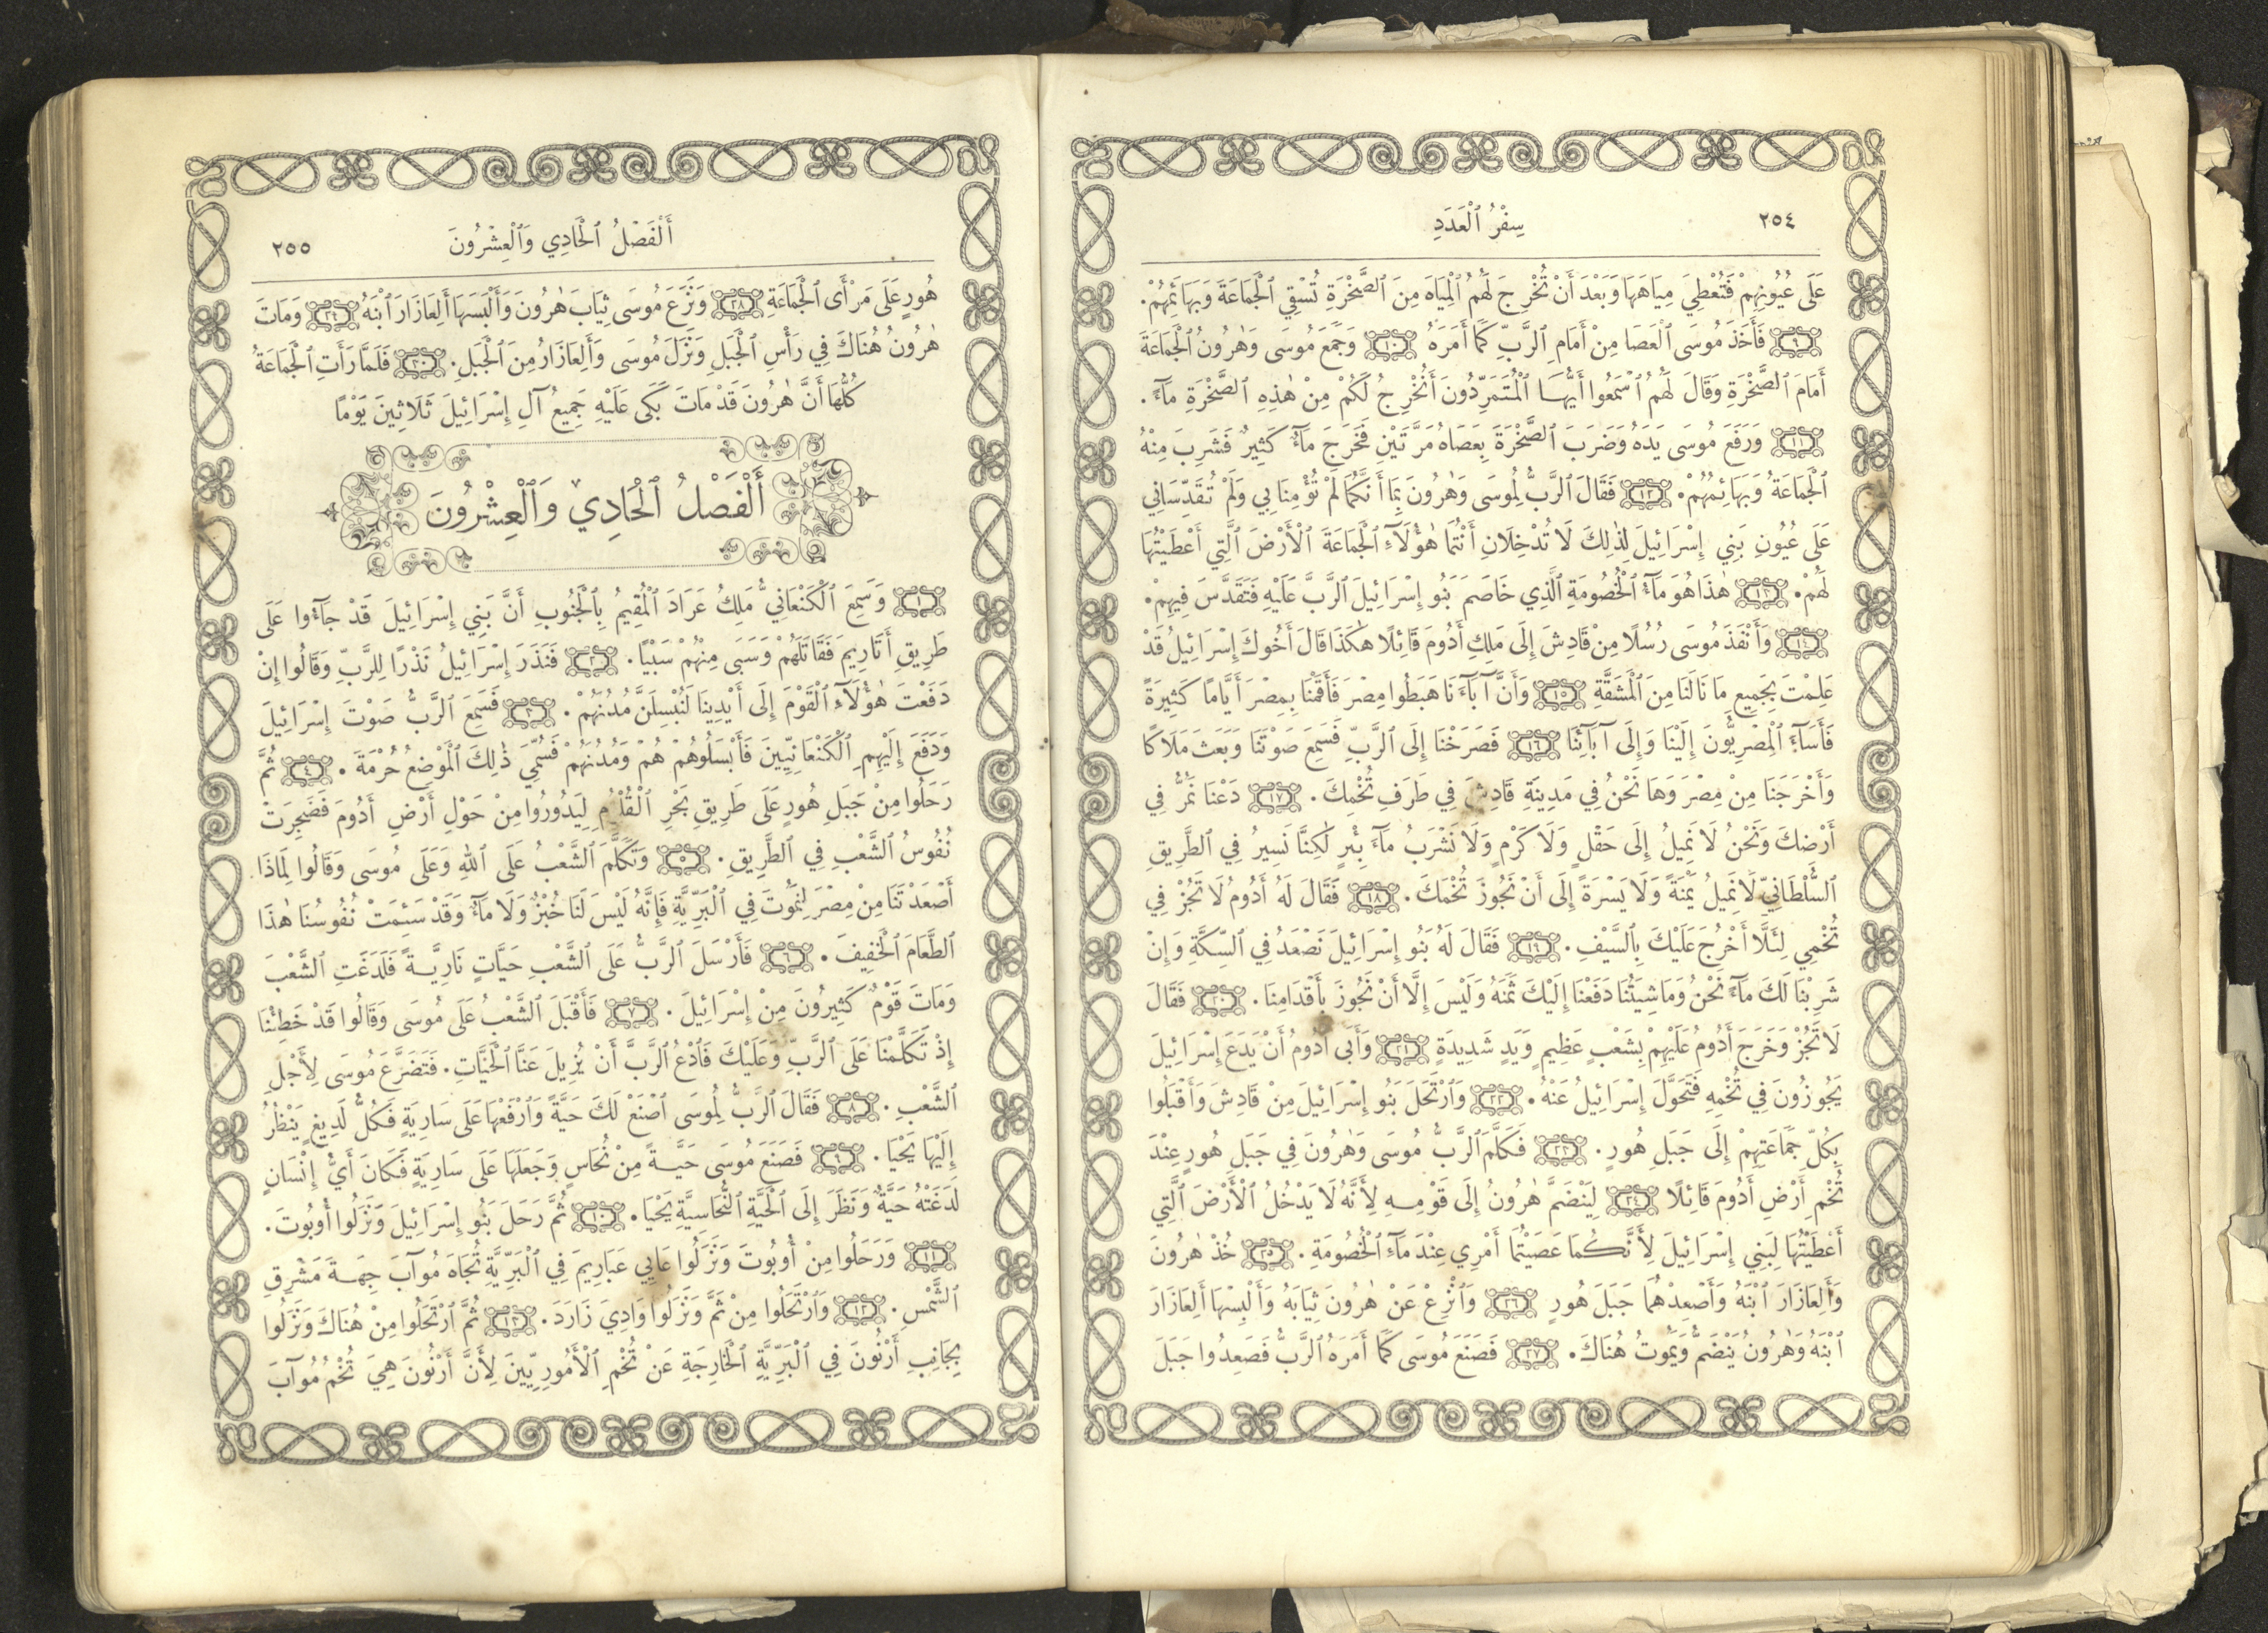 ٢٥٤
سِفْرُ ٱلْعَدَدِ
عَلَى عُيُونِهِمْ فَتُعْطِيَ مِيَاهَهَا وَبَعْدَ أَنْ تُخْرِجَ لَهُمُ ٱلْمِيَاهَ مِنَ ٱلصَّخْرَةِ تُسْقِي ٱلْجَمَاعَةَ وَبَهَائِمَهُمْ.
٩ فَأَخَذَ مُوسَى ٱلْعَصَا مِنْ أَمَامِ ٱلرَّبِّ كَمَا أَمَرَهُ ١٠ وَجَمَعَ مُوسَى وَهٰرُونُ ٱلْجَمَاعَةَ
أَمَامَ ٱلصَّخْرَةِ وَقَالَ لَهُمُ ٱسْمَعُوا أَيُّهَا ٱلْمُتَمَرِّدُونَ أَنُخْرِجُ لَكُمْ مِنْ هٰذِهِ ٱلصَّخْرَةِ مَآءً.
١١ وَرَفَعَ مُوسَى يَدَهُ وَضَرَبَ ٱلصَّخْرَةَ بِعَصَاهُ مَرَّتَيْنِ فَخَرَجَ مَآءٌ كَثِيرٌ فَشَرِبَ مِنْهُ
ٱلْجَمَاعَةُ وَبَهَائِمُهُمْ. ١٢ فَقَالَ ٱلرَّبُّ لِمُوسَى وَهٰرُونَ بِمَا أَنَّكُمَا لَمْ تُؤْمِنَا بِي وَلَمْ تُقَدِّسَانِي
عَلَى عُيُونِ بَنِي إِسْرَائِيلَ لِذٰلِكَ لَا تُدْخِلَانِ أَنْتُمَا هٰؤُلَآءِ ٱلْجَمَاعَةَ ٱلْأَرْضَ ٱلَّتِي أَعْطَيْتُهَا
لَهُمْ. ١٣ هٰذَا هُوَ مَآءُ ٱلْخُصُومَةِ ٱلَّذِي خَاصَمَ بَنُو إِسْرَائِيلَ ٱلرَّبَّ عَلَيْهِ فَتَقَدَّسَ فِيهِمْ.
١٤ وَأَنْفَذَ مُوسَى رُسُلًا مِنْ قَادِشَ إِلَى مَلِكِ أَدُومَ قَائِلًا هٰكَذَا قَالَ أَخُوكَ إِسْرَائِيلُ قَدْ
عَلِمْتَ بِجَمِيعِ مَا نَالَنَا مِنَ ٱلْمَشَقَّةِ ١٥ وَأَنَّ آبَآءَنَا هَبَطُوا مِصْرَ فَأَقَمْنَا بِمِصْرَ أَيَّامًا كَثِيرَةً
فَأَسَآءَ ٱلْمِصْرِيُّونَ إِلَيْنَا وَإِلَى آبَآئِنَا ١٦ فَصَرَخْنَا إِلَى ٱلرَّبِّ فَسَمِعَ صَوْتَنَا وَبَعَثَ مَلَاكًا
وَأَخْرَجَنَا مِنْ مِصْرَ وَهَا نَحْنُ فِي مَدِينَةِ قَادِشَ فِي طَرَفِ تُخْمِكَ. ١٧ دَعْنَا نَمُرُّ فِي
أَرْضِكَ وَنَحْنُ لَا نَمِيلُ إِلَى حَقْلٍ وَلَا كَرْمٍ وَلَا نَشْرَبُ مَآءَ بِئْرٍ لٰكِنَّا نَسِيرُ فِي ٱلطَّرِيقِ
ٱلسُّلْطَانِيِّ لَا نَمِيلُ يَمْنَةً وَلَا يَسْرَةً إِلَى أَنْ نَجُوزَ تُخْمَكَ. ١٨ فَقَالَ لَهُ أَدُومُ لَا تَجُزْ فِي
تُخْمِي لِئَلَّا أَخْرُجَ عَلَيْكَ بِٱلسَّيْفِ. ١٩ فَقَالَ لَهُ بَنُو إِسْرَائِيلَ نَصْعَدُ فِي ٱلسِّكَّةِ وَإِنْ
شَرِبْنَا لَكَ مَآءً نَحْنُ وَمَاشِيَتُنَا دَفَعْنَا إِلَيْكَ ثَمَنَهُ وَلَيْسَ إِلَّا أَنْ نَجُوزَ بِأَقْدَامِنَا. ٢٠ فَقَالَ
لَا تَجُزْ وَخَرَجَ أَدُومُ عَلَيْهِمْ بِشَعْبٍ عَظِيمٍ وَيَدٍ شَدِيدَةٍ ٢١ وَأَبَى أَدُومُ أَنْ يَدَعَ إِسْرَائِيلَ
يَجُوزُونَ فِي تُخْمِهِ فَتَحَوَّلَ إِسْرَائِيلُ عَنْهُ. ٢٢ وَٱرْتَحَلَ بَنُو إِسْرَائِيلَ مِنْ قَادِشَ وَأَقْبَلُوا
بِكُلِّ جَمَاعَتِهِمْ إِلَى جَبَلِ هُورٍ. ٢٣ فَكَلَّمَ ٱلرَّبُّ مُوسَى وَهٰرُونَ فِي جَبَلِ هُورٍ عِنْدَ
تُخْمِ أَرْضِ أَدُومَ قَائِلًا ٢٤ لِيَنْضَمَّ هٰرُونُ إِلَى قَوْمِهِ لِأَنَّهُ لَا يَدْخُلُ ٱلْأَرْضَ ٱلَّتِي
أَعْطَيْتُهَا لِبَنِي إِسْرَائِيلَ لِأَنَّكُمَا عَصَيْتُمَا أَمْرِي عِنْدَ مَآءِ ٱلْخُصُومَةِ. ٢٥ خُذْ هٰرُونَ
وَأَلِعَازَارَ ٱبْنَهُ وَأَصْعِدْهُمَا جَبَلَ هُورٍ ٢٦ وَٱنْزِعْ عَنْ هٰرُونَ ثِيَابَهُ وَأَلْبِسْهَا أَلِعَازَارَ
ٱبْنَهُ وَهٰرُونُ يَنْضَمُّ وَيَمُوتُ هُنَاكَ. ٢٧ فَصَنَعَ مُوسَى كَمَا أَمَرَهُ ٱلرَّبُّ فَصَعِدُوا جَبَلَ
أَلْفَصْلُ ٱلْحَادِي وَٱلْعِشْرُونَ
٢٥٥
هُورٍ عَلَى مَرْأَى ٱلْجَمَاعَةِ ٢٨ وَنَزَعَ مُوسَى ثِيَابَ هٰرُونَ وَأَلْبَسَهَا أَلِعَازَارَ ٱبْنَهُ ٢٩ وَمَاتَ
هٰرُونُ هُنَاكَ فِي رَأْسِ ٱلْجَبَلِ وَنَزَلَ مُوسَى وَأَلِعَازَارُ مِنَ ٱلْجَبَلِ. ٣٠ فَلَمَّا رَأَتِ ٱلْجَمَاعَةُ
كُلُّهَا أَنَّ هٰرُونَ قَدْ مَاتَ بَكَى عَلَيْهِ جَمِيعُ آلِ إِسْرَائِيلَ ثَلَاثِينَ يَوْمًا
أَلْفَصْلُ ٱلْحَادِي وَٱلْعِشْرُونَ
١ وَسَمِعَ ٱلْكَنْعَانِيُّ مَلِكُ عَرَادَ ٱلْمُقِيمُ بِٱلْجَنُوبِ أَنَّ بَنِي إِسْرَائِيلَ قَدْ جَآءُوا عَلَى
طَرِيقِ أَتَارِيمَ فَقَاتَلَهُمْ وَسَبَى مِنْهُمْ سَبْيًا. ٢ فَنَذَرَ إِسْرَائِيلُ نَذْرًا لِلرَّبِّ وَقَالُوا إِنْ
دَفَعْتَ هٰؤُلَآءِ ٱلْقَوْمَ إِلَى أَيْدِينَا لَنُبْسِلَنَّ مُدُنَهُمْ. ٣ فَسَمِعَ ٱلرَّبُّ صَوْتَ إِسْرَائِيلَ
وَدَفَعَ إِلَيْهِمِ ٱلْكَنْعَانِيِّينَ فَأَبْسَلُوهُمْ هُمْ وَمُدُنَهُمْ فَسُمِّيَ ذٰلِكَ ٱلْمَوْضِعُ حُرْمَةَ. ٤ ثُمَّ
رَحَلُوا مِنْ جَبَلِ هُورٍ عَلَى طَرِيقِ بَحْرِ ٱلْقُلْزُمِ لِيَدُورُوا مِنْ حَوْلِ أَرْضِ أَدُومَ فَضَجِرَتْ
نُفُوسُ ٱلشَّعْبِ فِي ٱلطَّرِيقِ. ٥ وَتَكَلَّمَ ٱلشَّعْبُ عَلَى ٱللهِ وَعَلَى مُوسَى وَقَالُوا لِمَاذَا
أَصْعَدْتَنَا مِنْ مِصْرَ لِنَمُوتَ فِي ٱلْبَرِّيَّةِ فَإِنَّهُ لَيْسَ لَنَا خُبْزٌ وَلَا مَآءٌ وَقَدْ سَئِمَتْ نُفُوسُنَا هٰذَا
ٱلطَّعَامَ ٱلْخَفِيفَ. ٦ فَأَرْسَلَ ٱلرَّبُّ عَلَى ٱلشَّعْبِ حَيَّاتٍ نَارِيَّةً فَلَدَغَتِ ٱلشَّعْبَ
وَمَاتَ قَوْمٌ كَثِيرُونَ مِنْ إِسْرَائِيلَ. ٧ فَأَقْبَلَ ٱلشَّعْبُ عَلَى مُوسَى وَقَالُوا قَدْ خَطِئْنَا
إِذْ تَكَلَّمْنَا عَلَى ٱلرَّبِّ وَعَلَيْكَ فَٱدْعُ ٱلرَّبَّ أَنْ يُزِيلَ عَنَّا ٱلْحَيَّاتِ. فَتَضَرَّعَ مُوسَى لِأَجْلِ
ٱلشَّعْبِ. ٨ فَقَالَ ٱلرَّبُّ لِمُوسَى ٱصْنَعْ لَكَ حَيَّةً وَٱرْفَعْهَا عَلَى سَارِيَةٍ فَكُلُّ لَدِيغٍ يَنْظُرُ
إِلَيْهَا يَحْيَا. ٩ فَصَنَعَ مُوسَى حَيَّةً مِنْ نُحَاسٍ وَجَعَلَهَا عَلَى سَارِيَةٍ فَكَانَ أَيُّ إِنْسَانٍ
لَدَغَتْهُ حَيَّةٌ وَنَظَرَ إِلَى ٱلْحَيَّةِ ٱلنُّحَاسِيَّةِ يَحْيَا. ١٠ ثُمَّ رَحَلَ بَنُو إِسْرَائِيلَ وَنَزَلُوا أُوبُوتَ.
١١ وَرَحَلُوا مِنْ أُوبُوتَ وَنَزَلُوا عَابِي عَبَارِيمَ فِي ٱلْبَرِّيَّةِ تُجَاهَ مُوآبَ جِهَةَ مَشْرِقِ
ٱلشَّمْسِ. ١٢ وَٱرْتَحَلُوا مِنْ ثَمَّ وَنَزَلُوا وَادِيَ زَارَدَ. ١٣ ثُمَّ ٱرْتَحَلُوا مِنْ هُنَاكَ وَنَزَلُوا
بِجَانِبِ أَرْنُونَ فِي ٱلْبَرِّيَّةِ ٱلْخَارِجَةِ عَنْ تُخْمِ ٱلْأَمُورِيِّينَ لِأَنَّ أَرْنُونَ هِيَ تُخْمُ مُوآبَ